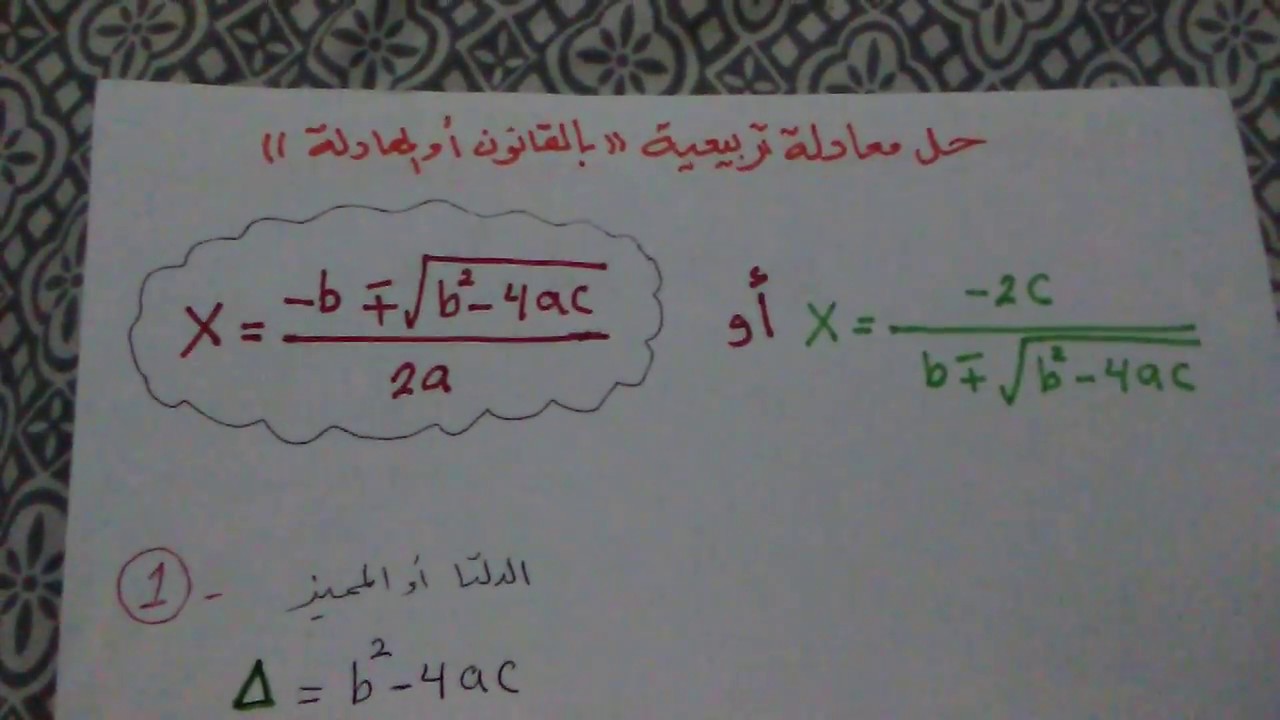 حل معادلة تربيعية (( بالقانون أو المعادلة ))
X = (-b ∓ √(b² - 4ac)) / 2a أو X = -2c / (b ∓ √(b² - 4ac))
1 - الدلتا أو المميز
Δ = b² - 4ac